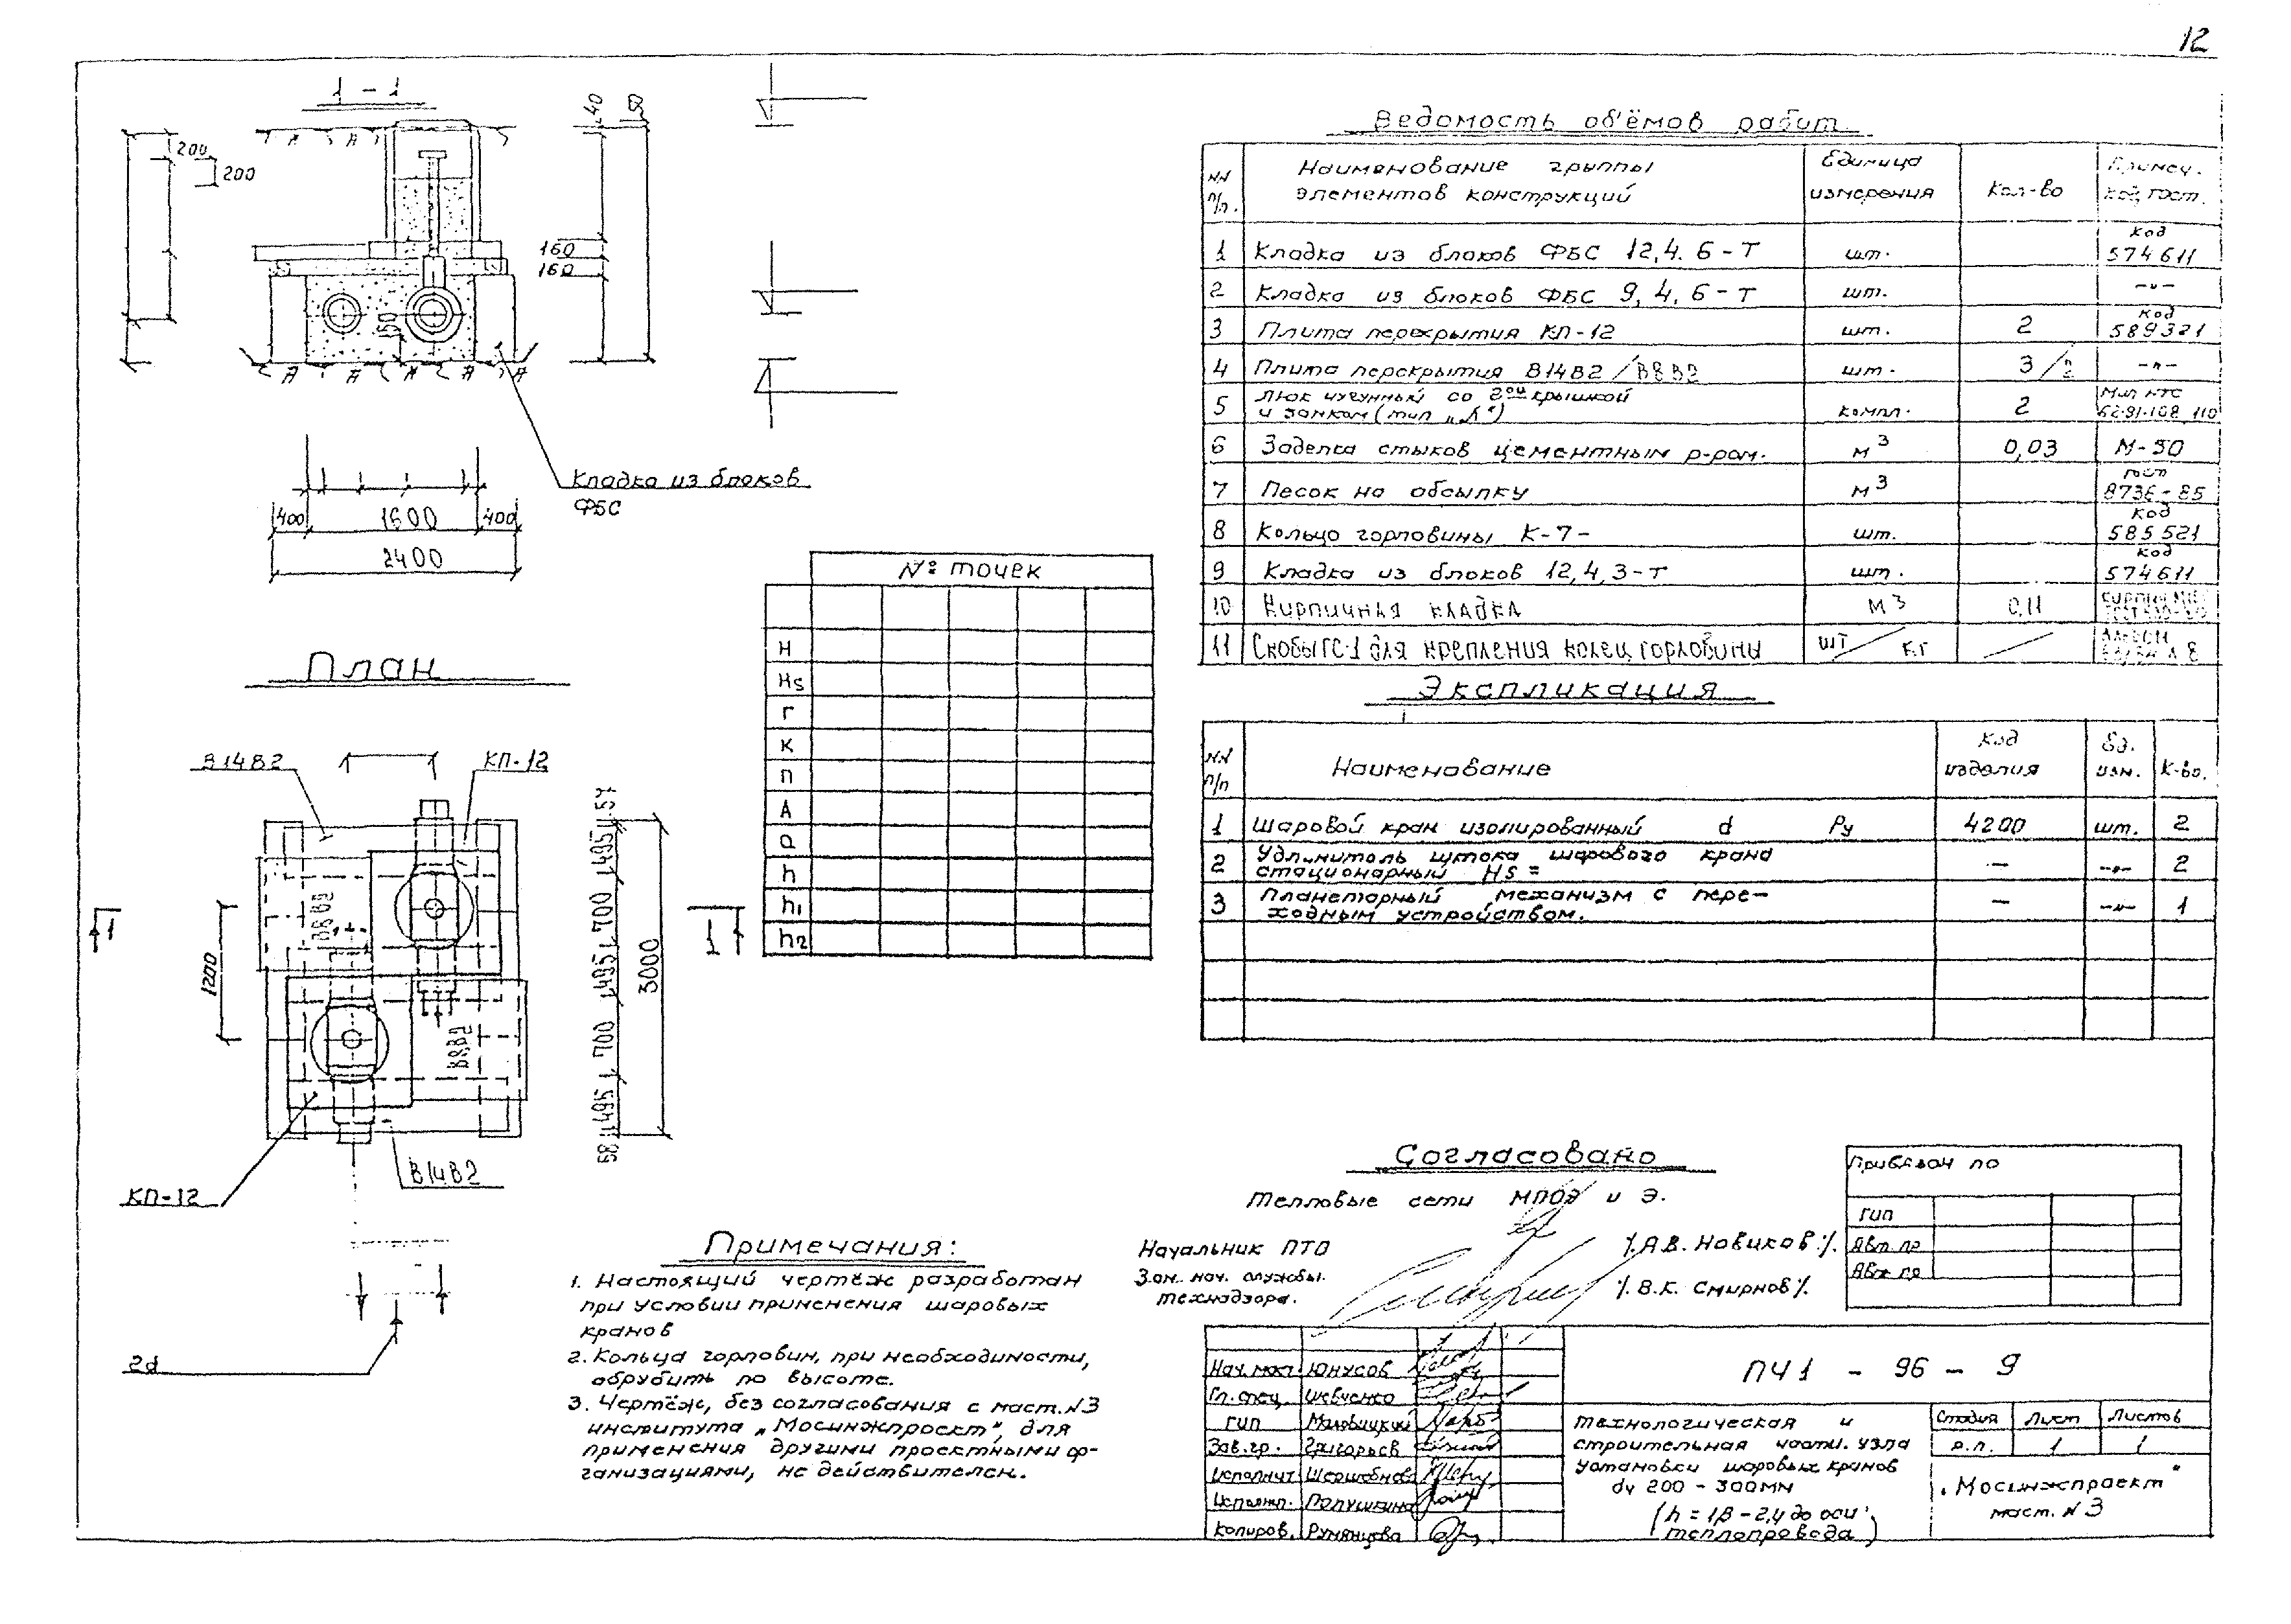 12
1 - 1
200
200
40
160
160
150
Кладка из блоков
ФБС
400 1600 400
2400
План
В14В2
КП-12
В8В2
В8В2
1
1
1200
57 495 700 495 700 495 58
3000
КП-12
В14В2
2d
№ точек
H
Hs
Г
К
П
А
а
h
h1
h2
Примечания:
1. Настоящий чертёж разработан
при условии применения шаровых
кранов
2. Кольца горловин, при необходимости,
обрубить по высоте.
3. Чертёж, без согласования с маст. N3
института „Мосинжпроект", для
применения другими проектными ор-
ганизациями, не действителен.
Ведомость об'ёмов работ
NN п/п. Наименование группы элементов конструкций Единица измерения Кол-во Примеч. код, гост.
1 Кладка из блоков ФБС 12,4.6-Т шт. Код 574611
2 Кладка из блоков ФБС 9,4,6-Т шт. -"-
3 Плита перекрытия КП-12 шт. 2 Код 589321
4 Плита перекрытия В14В2/В8В2 шт. 3/2 -"-
5 Люк чугунный со 2ой крышкой и замком (тип „Л") компл. 2
6 Заделка стыков цементным р-ром. м3 0,03 М-50
7 Песок на обсыпку м3 гост 8736-85
8 Кольцо горловины К-7- шт. Код 585521
9 Кладка из блоков 12,4,3-Т шт. Код 574611
10 Кирпичная кладка м3 0,11
11 Скобы ГС-1 для крепления колец горловины шт/кг
Экспликация
NN п/п Наименование Код изделия Ед. изм. К-во.
1 Шаровой кран изолированный d Ру 4200 шт. 2
2 Удлинитель штока шарового крана стационарный Hs = - -"- 2
3 Планетарный механизм с пере-ходным устройством. - -"- 1
Согласовано
Тепловые сети МПОЭ и Э.
Начальник ПТО /.А.В. Новиков./.
Зам. нач. службы.
технадзора. /. В.К. Смирнов/.
Привязан по
ГИП
Авт. пр
Авт. пр
Нач. маст. Юнусов
Гл. спец. Шевченко
ГИП
Зав. гр. Григорьев
Исполнит
Исполн. Полушкина
Копиров. Румянцева
ПЧ1 - 96 - 9
Технологическая и
строительная части. узла
установки шаровых кранов
dу 200 - 300мм
(h = 1,8 - 2,4 до оси
теплопровода)
Стадия Лист Листов
р.п. 1 1
„Мосинжпроект"
маст. N 3